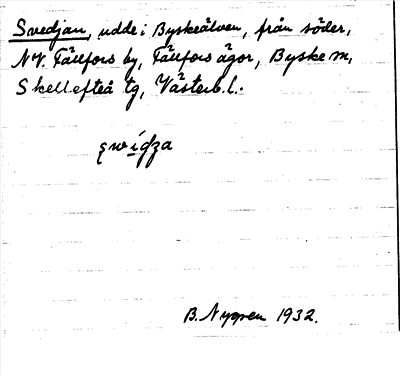 Svedjan, udde i Byskeälven, från söder,
NV. Fällfors by, Fällfors ägor, Byske sn,
Skellefteå tg, Västerb. l.
B. Nygren 1932.